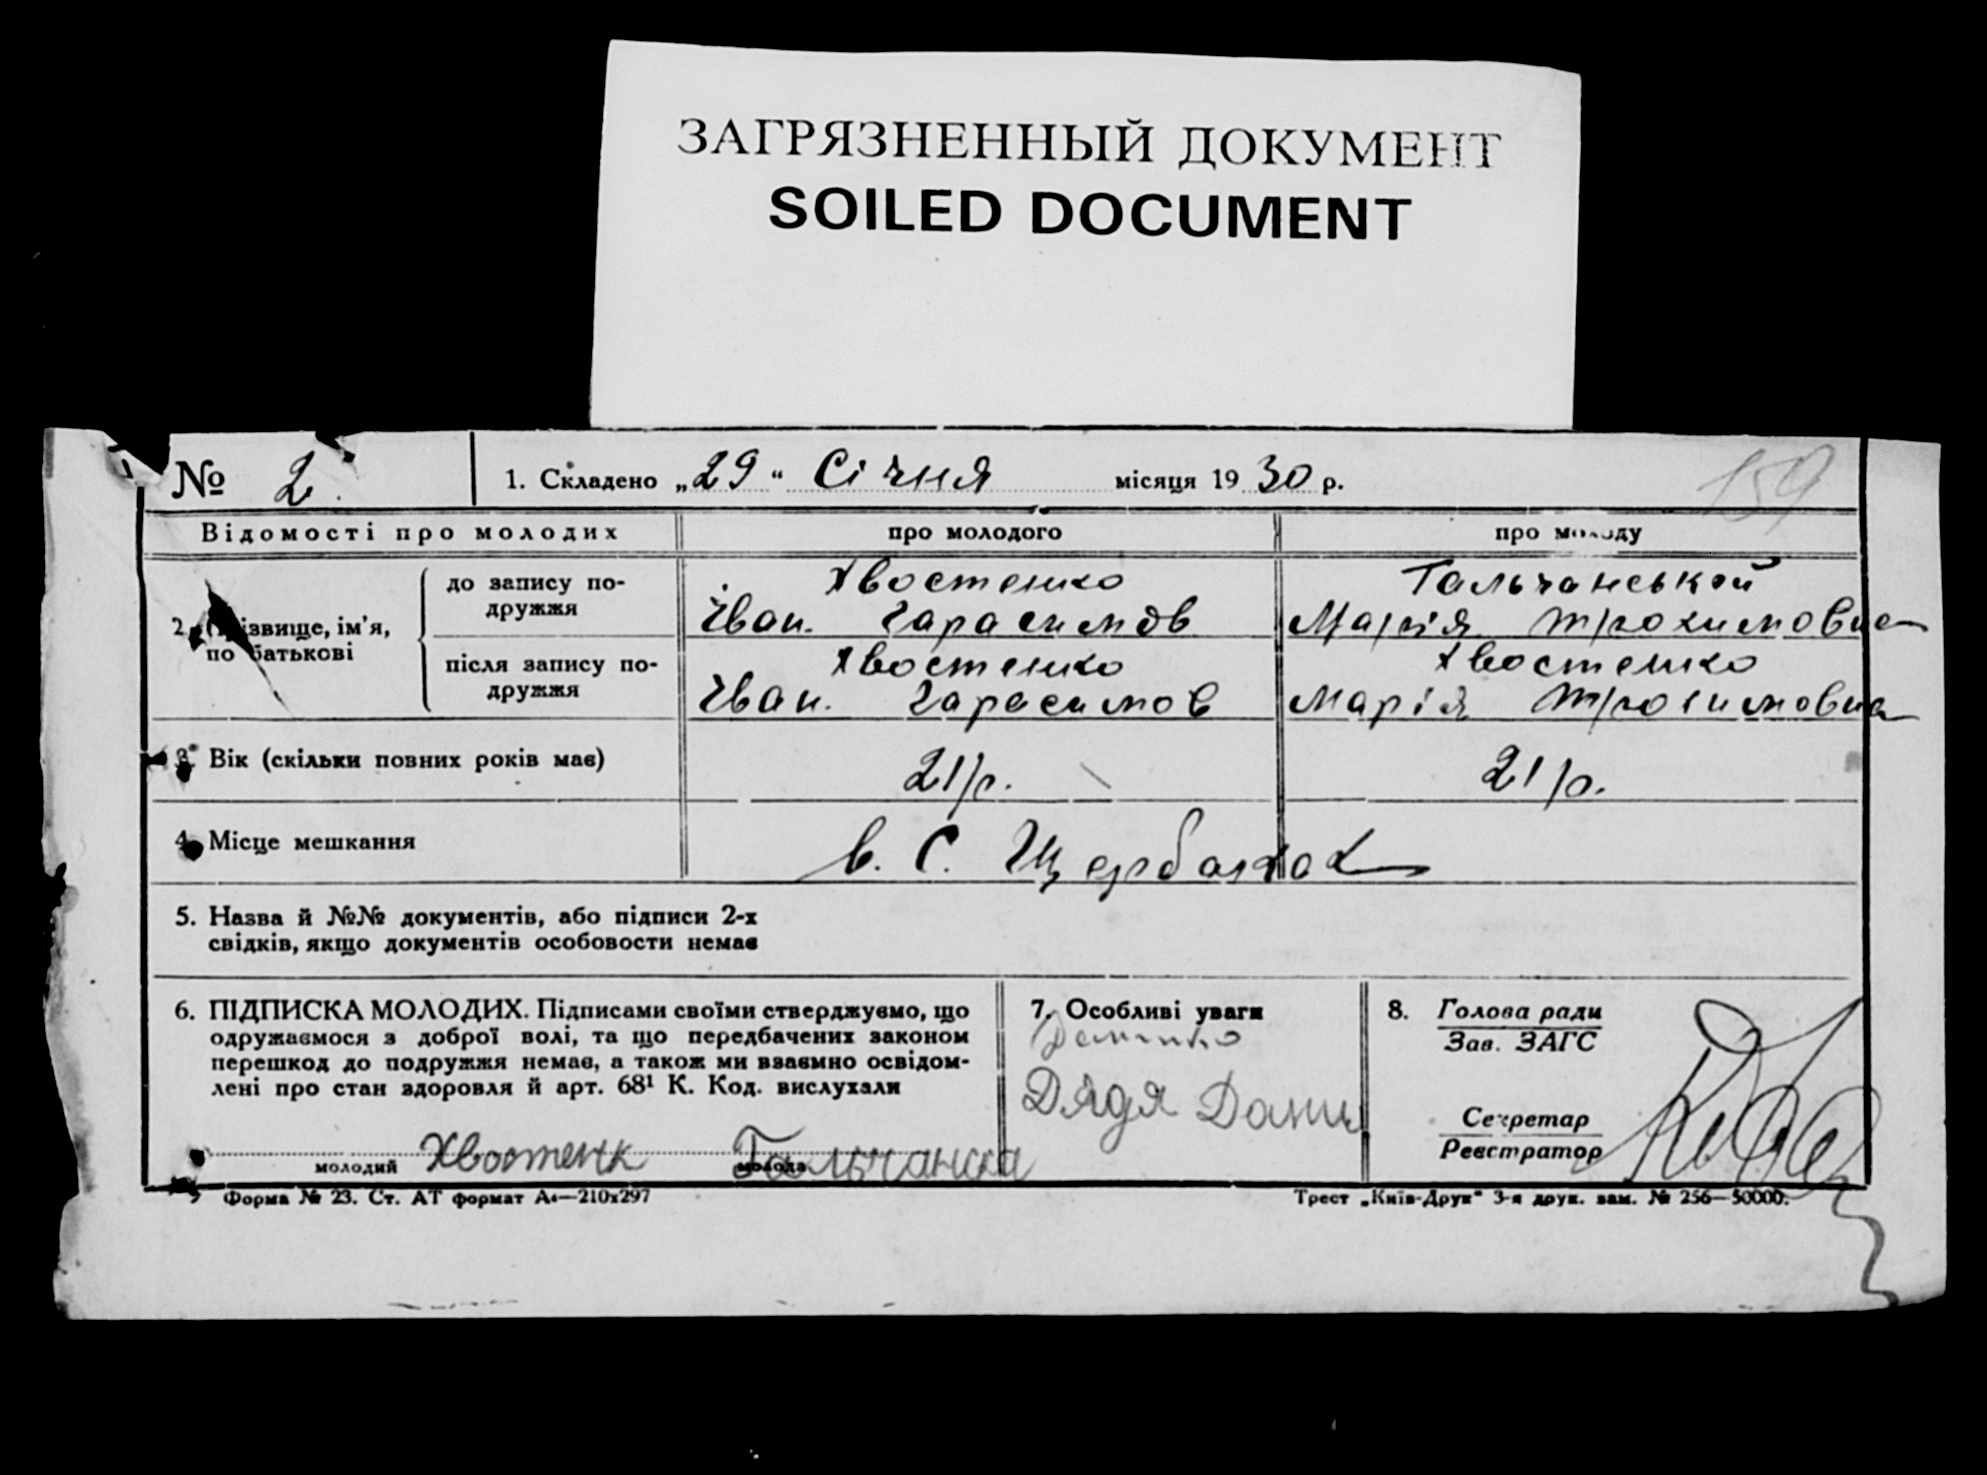 ЗАГРЯЗНЕННЫЙ ДОКУМЕНТ
SOILED DOCUMENT
№ 2. 1. Складено „29“ Січня місяця 1930 р. 159
Відомості про молодих про молодого про молоду
2. Прізвище, ім'я, по батькові
до запису подружжя
Хвостенко Тальчанській
Іван Гарасимов Марія Трохимовна
після запису подружжя
Хвостенко Хвостенко
Іван Гарасимов Марія Трохимовна
3. Вік (скільки повних років має) 21 р. 21 р.
4. Місце мешкання в. С. Щербаках
5. Назва й №№ документів, або підписи 2-х
свідків, якщо документів особовости немає
6. ПІДПИСКА МОЛОДИХ. Підписами своїми стверджуємо, що
одружаємося з доброї волі, та що передбачених законом
перешкод до подружжя немає, а також ми взаємно освідом-
лені про стан здоровля й арт. 68¹ К. Код. вислухали
молодий Хвостенк молода Тальчанска
7. Особливі уваги
Дядя Дани
8. Голова ради
Зав. ЗАГС
Секретар
Реєстратор
Форма № 23. Ст. АТ формат А4—210х297 Трест „Київ-Друк“ 3-я друк. зам. № 256—50000.